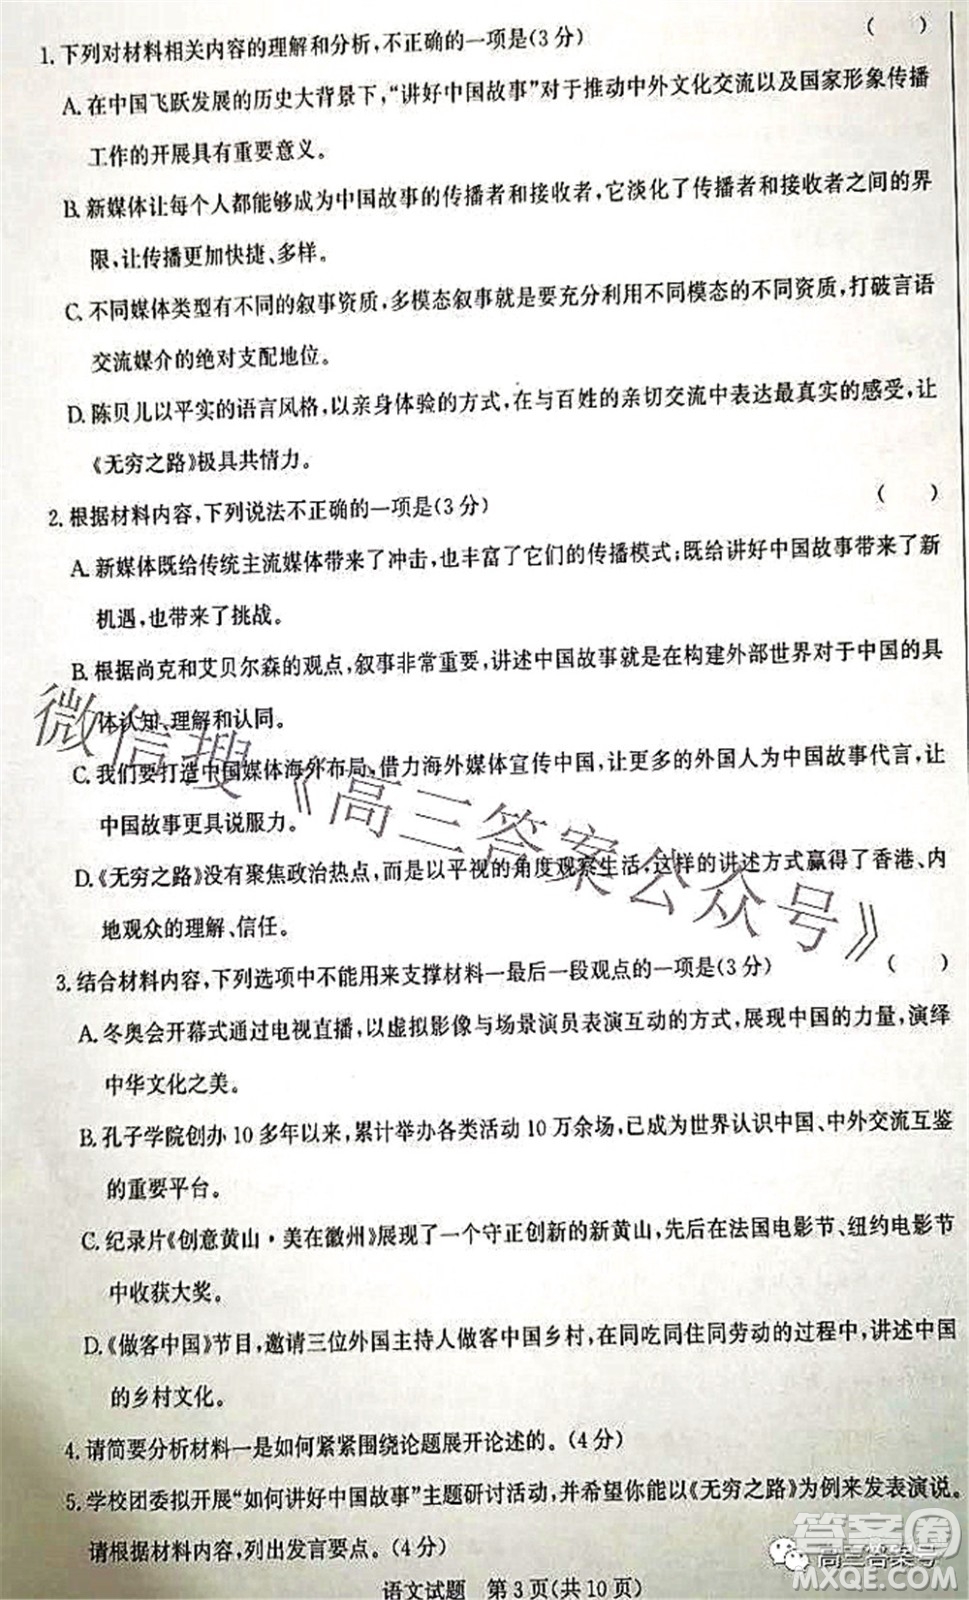 1. 下列对材料相关内容的理解和分析,不正确的一项是(3分) (  )
A. 在中国飞跃发展的历史大背景下,“讲好中国故事”对于推动中外文化交流以及国家形象传播
工作的开展具有重要意义。
B. 新媒体让每个人都能够成为中国故事的传播者和接收者,它淡化了传播者和接收者之间的界
限,让传播更加快捷、多样。
C. 不同媒体类型有不同的叙事资质,多模态叙事就是要充分利用不同模态的不同资质,打破言语
交流媒介的绝对支配地位。
D. 陈贝儿以平实的语言风格,以亲身体验的方式,在与百姓的亲切交流中表达最真实的感受,让
《无穷之路》极具共情力。
2. 根据材料内容,下列说法不正确的一项是(3分) (  )
A. 新媒体既给传统主流媒体带来了冲击,也丰富了它们的传播模式;既给讲好中国故事带来了新
机遇,也带来了挑战。
B. 根据尚克和艾贝尔森的观点,叙事非常重要,讲述中国故事就是在构建外部世界对于中国的具
体认知、理解和认同。
C. 我们要打造中国媒体海外布局,借力海外媒体宣传中国,让更多的外国人为中国故事代言,让
中国故事更具说服力。
D.《无穷之路》没有聚焦政治热点,而是以平视的角度观察生活,这样的讲述方式赢得了香港、内
地观众的理解、信任。
微信搜《高三答案公众号》
3. 结合材料内容,下列选项中不能用来支撑材料一最后一段观点的一项是(3分) (  )
A. 冬奥会开幕式通过电视直播,以虚拟影像与场景演员表演互动的方式,展现中国的力量,演绎
中华文化之美。
B. 孔子学院创办10多年以来,累计举办各类活动10万余场,已成为世界认识中国、中外交流互鉴
的重要平台。
C. 纪录片《创意黄山·美在徽州》展现了一个守正创新的新黄山,先后在法国电影节、纽约电影节
中收获大奖。
D.《做客中国》节目,邀请三位外国主持人做客中国乡村,在同吃同住同劳动的过程中,讲述中国
的乡村文化。
4. 请简要分析材料一是如何紧紧围绕论题展开论述的。(4分)
5. 学校团委拟开展“如何讲好中国故事”主题研讨活动,并希望你能以《无穷之路》为例来发表演说。
请根据材料内容,列出发言要点。(4分)
高三答案号
答案圈
MXQE.COM
语文试题 第3页(共10页)